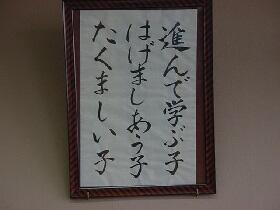 進んで学ぶ子
はげましあう子
たくましい子